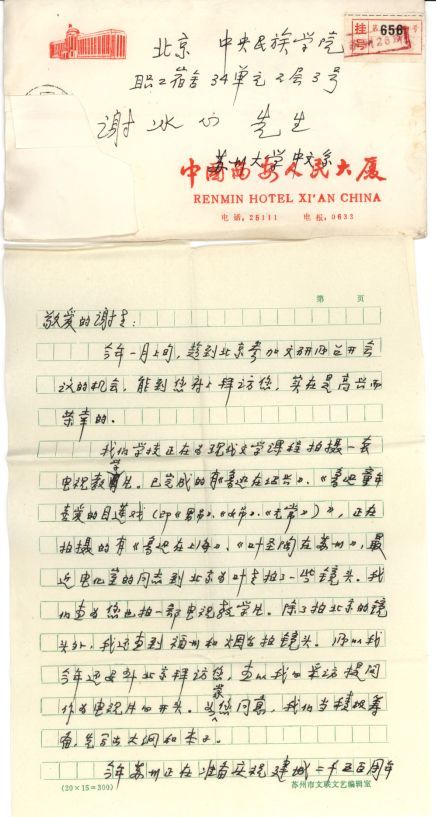 北京 中央民族学院
职工宿舍34单元2层3号
谢冰心 先生
苏州大学中文系
挂号
656
中国西安人民大厦
RENMIN HOTEL XI'AN CHINA
电话:25111 电报:0633
第 页
敬爱的谢老:
今年一月上旬,趁到北京参加文研所召开会
议的机会,能到您府上拜访您,实在是高兴而
荣幸的。
我们学校正在为现代文学课程拍摄一套
电视教学片,已完成的有《鲁迅在绍兴》、《鲁迅童年
喜爱的目连戏(即《男吊》、《女吊》、《无常》)》,正在
拍摄的有《鲁迅在上海》、《叶圣陶在苏州》,最
近电化室的同志到北京为叶老拍了一些镜头。我
们查为您也拍一部电视教学片。除了拍北京的镜
头外,我还查到福州和烟台拍镜头。所以我
今年还要到北京拜访您,查以我的采访提问
作为电视片的开头。当蒙您同意,我们当积极筹
备,先写出大纲和本子。
今年苏州正在准备庆祝建城二千五百周年
(20×15=300)
苏州市文联文艺编辑室